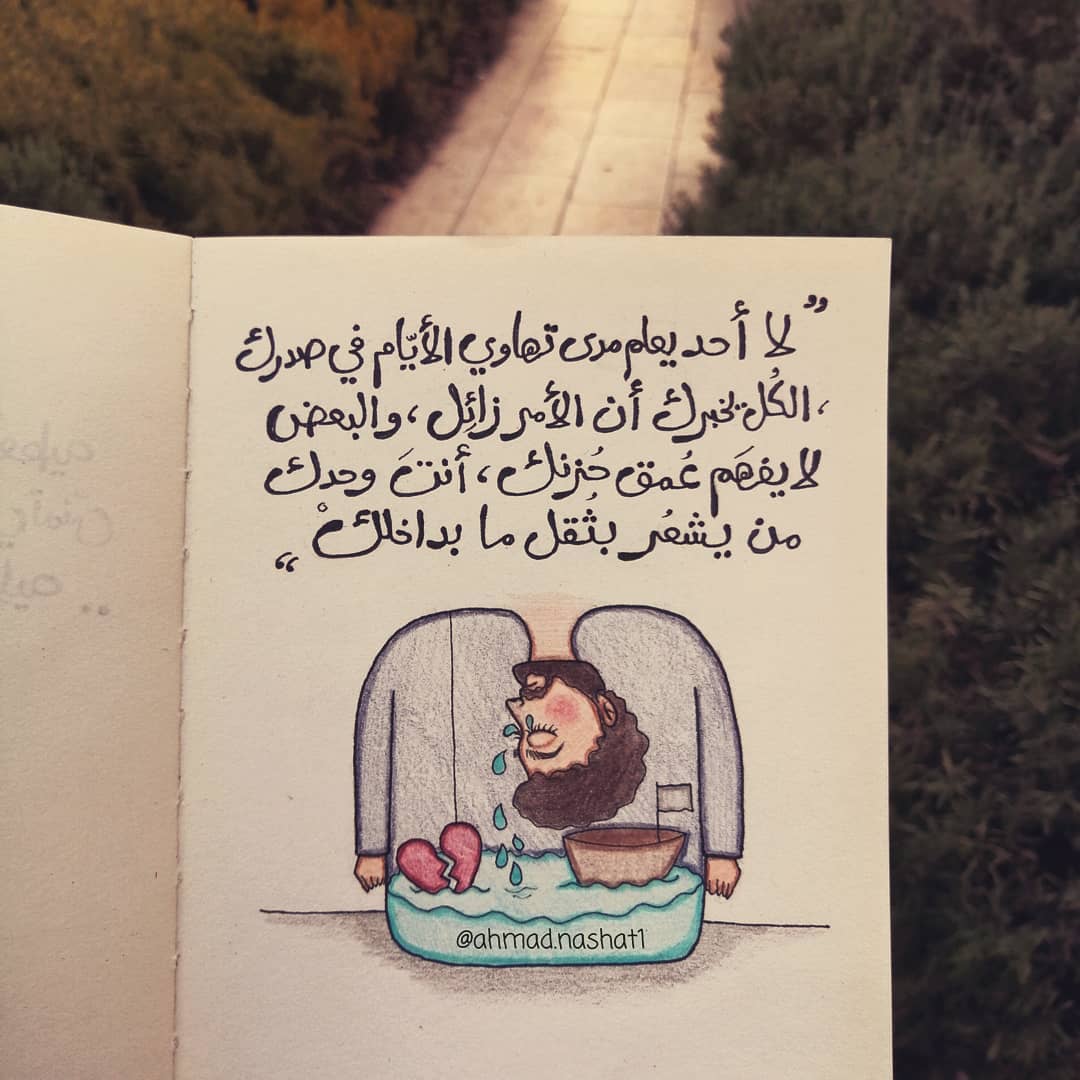 ” لا أحد يعلم مدى تهاوي الأيّام في صدرك
،الكُل يخبرك أن الأمر زائِل ،والبعض
لا يفهَم عُمق حُزنك ، أنتَ وحدك
من يشعُر بثُقل ما بداخلكْ “
@ahmad.nashat1